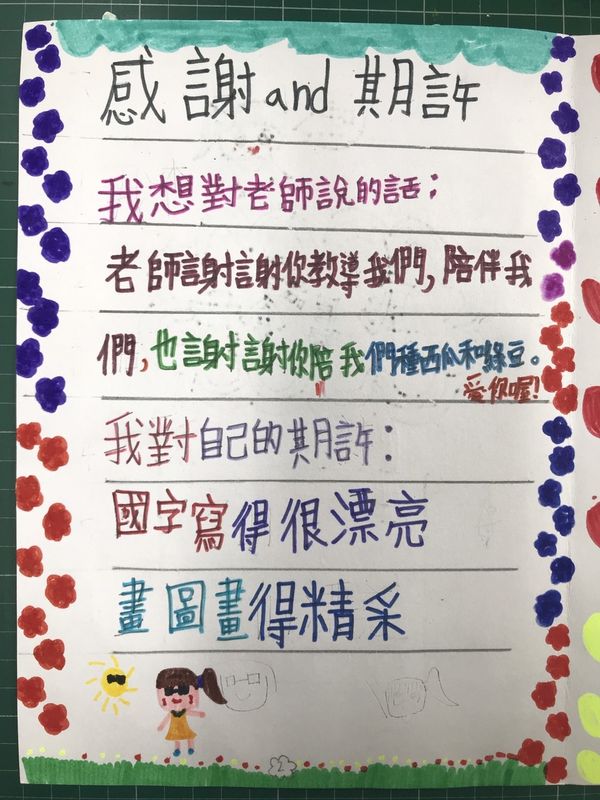 感謝and期許
我想對老師說的話：
老師謝謝你教導我們,陪伴我
們,也謝謝你陪我們種西瓜和綠豆。
愛你喔!
我對自己的期許：
國字寫得很漂亮
畫圖畫得精采
2